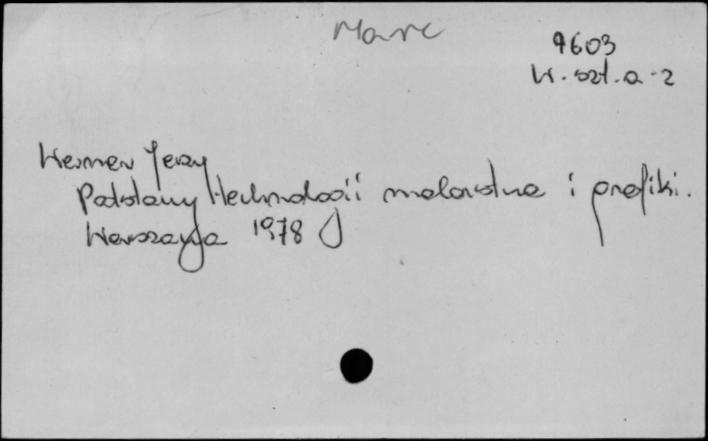 Marc
9603
W. szt. a-2
Werner Jerzy
Podstawy technologii malarstwa i grafiki.
Warszawa 1978